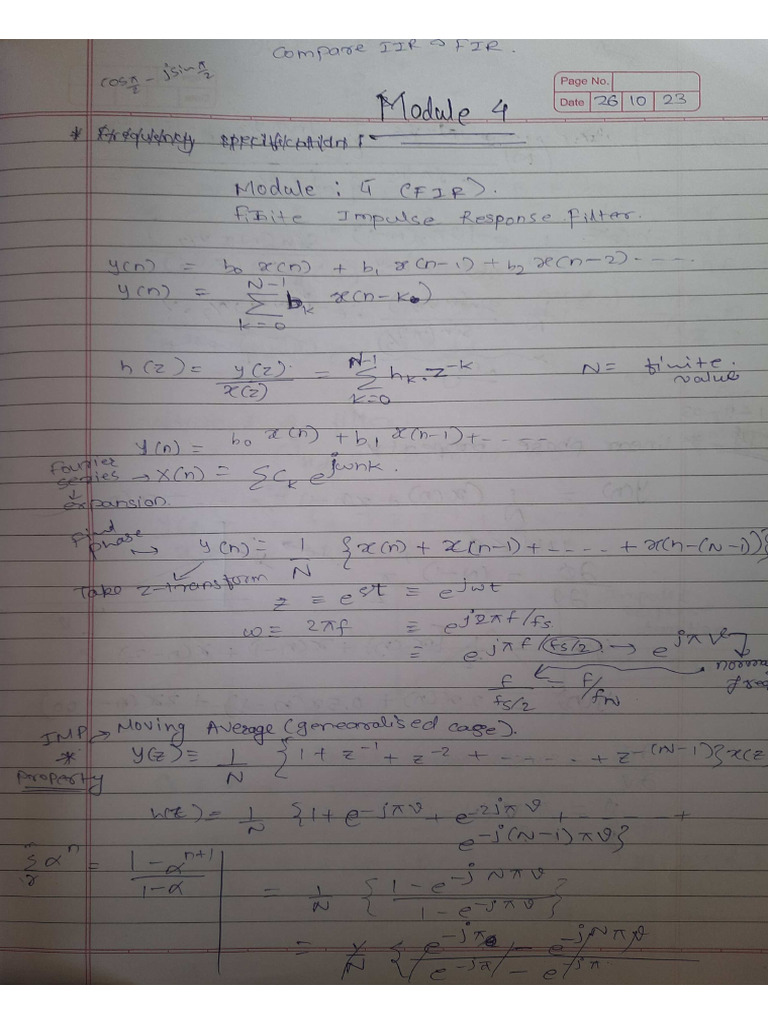 Compare IIR & FIR.
cos π/2 - j sin π/2
Page No.
Date 26 10 23
Module 4
* Frequency specification :
Module : 4 (FIR).
Finite Impulse Response Filter.
y(n) = b₀ x(n) + b₁ x(n-1) + b₂ x(n-2) .....
y(n) = Σ_{k=0}^{N-1} b_k x(n-k)
h(z) = y(z)/x(z) = Σ_{k=0}^{N-1} h_k . z^{-k} N = finite value
y(n) = b₀ x(n) + b₁ x(n-1) + - - - -
Fourier series ↓ expansion → x(n) = Σ C_k e^{jωnk}.
Find phase → y(n) = 1/N {x(n) + x(n-1) + ..... + x(n-(N-1))}
Take z-transform
z = e^{sT} = e^{jωt}
ω = 2πf = e^{j2πf/fs}
= e^{jπf/(fs/2)} → e^{jπϑ}
f/(fs/2) = f/f_N
IMP → Moving Average (genearalised case).
* Property
y(z) = 1/N {1 + z^{-1} + z^{-2} + ...... + z^{-(N-1)}} x(z
H(z) = 1/N {1 + e^{-jπϑ} + e^{-2jπϑ} + ------ +
e^{-j(N-1)πϑ}}
Σ α^n = (1 - α^{n+1})/(1 - α)
= 1/N {(1 - e^{-jNπϑ})/(1 - e^{-jπϑ})}